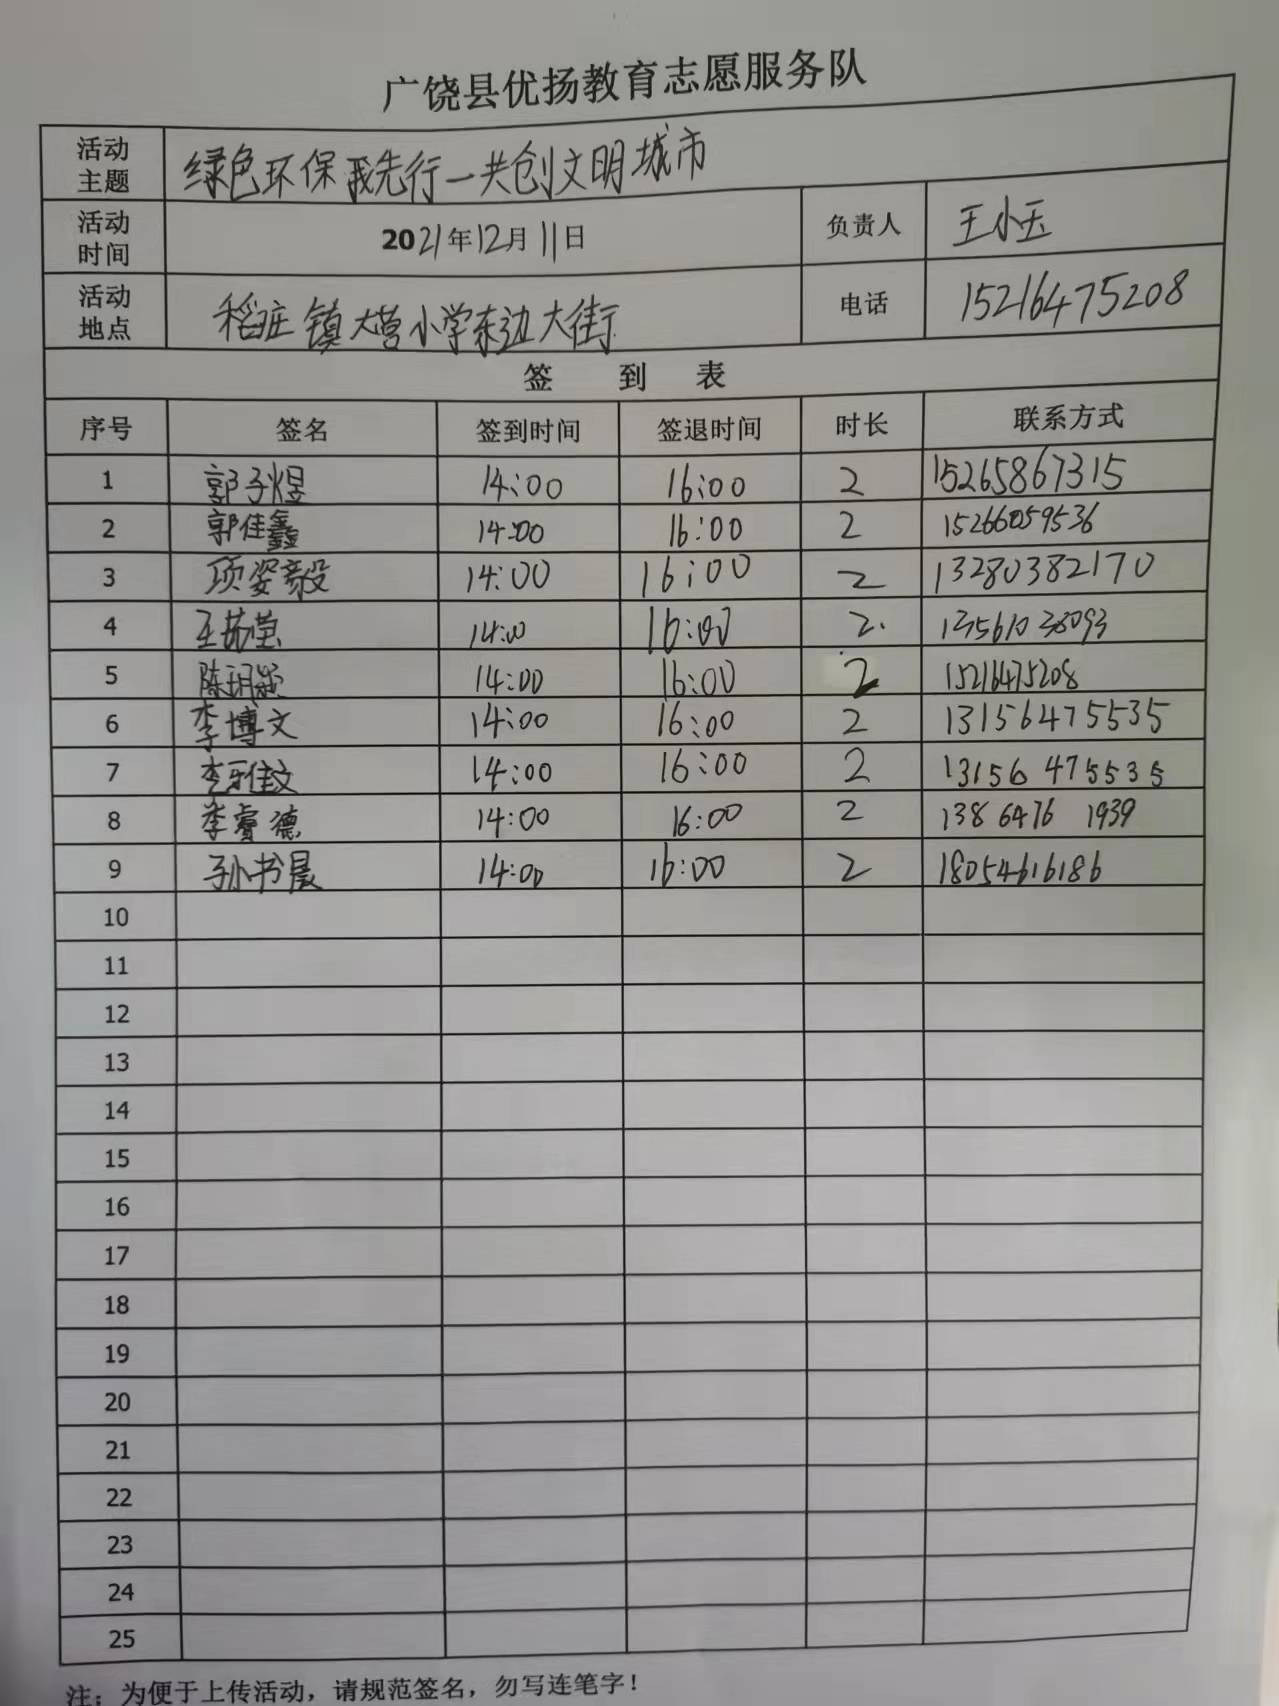 广饶县优扬教育志愿服务队
活动主题 绿色环保我先行一共创文明城市
活动时间 2021年12月11日 负责人 王小玉
活动地点 稻庄镇大营小学东边大街 电话 15216475208
签 到 表
序号 签名 签到时间 签退时间 时长 联系方式
1 郭子煜 14:00 16:00 2 15265867315
2 郭佳鑫 14:00 16:00 2 15266059536
3 项姿毅 14:00 16:00 2 13280382170
4 14:00 16:00 2.
5 14:00 16:00 2 15216475208
6 李博文 14:00 16:00 2 13156475535
7 李雅文 14:00 16:00 2 13156 475535
8 李睿德 14:00 16:00 2 138 6476 1939
9 孙书晨 14:00 16:00 2 18054616186
10
11
12
13
14
15
16
17
18
19
20
21
22
23
24
25
注：为便于上传活动，请规范签名，勿写连笔字！